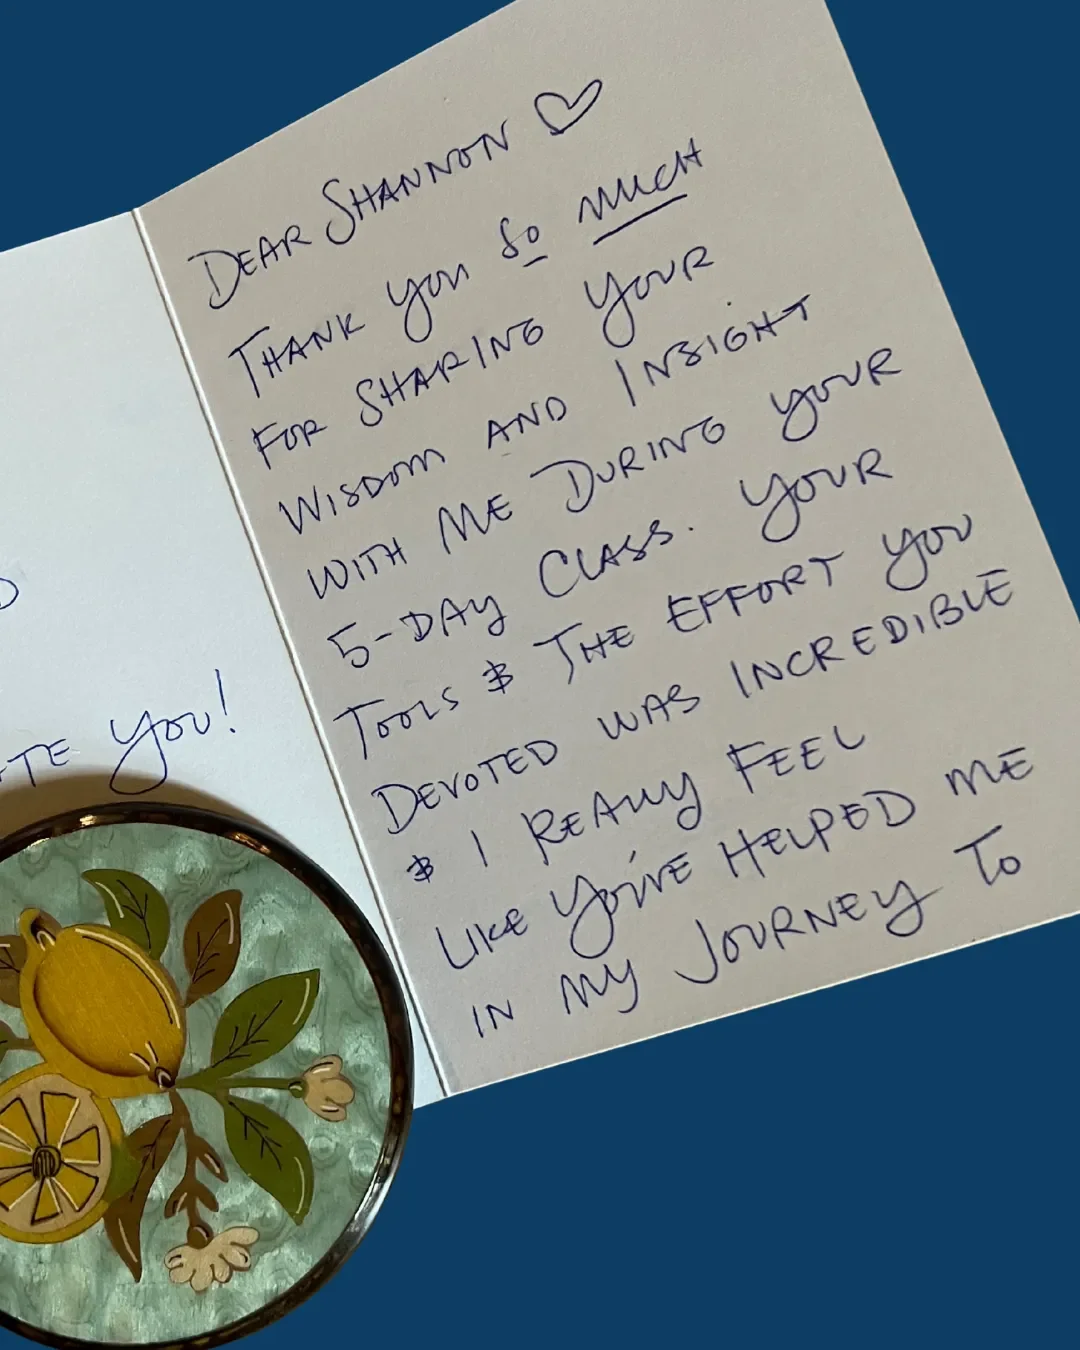 DEAR SHANNON ♡
THANK YOU SO MUCH
FOR SHARING YOUR
WISDOM AND INSIGHT
WITH ME DURING YOUR
5-DAY CLASS. YOUR
TOOLS & THE EFFORT YOU
DEVOTED WAS INCREDIBLE
& I REALLY FEEL
LIKE YOU'VE HELPED ME
IN MY JOURNEY TO
YOU!